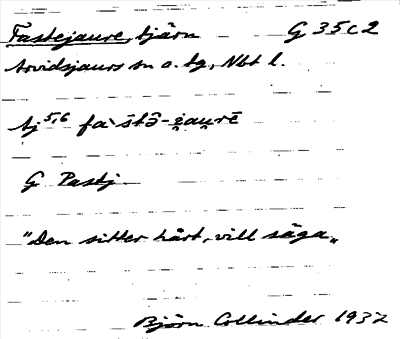 Fastejaure, tjärn G 35 c 2
Arvidsjaurs sn o. tg, Nbt l.
Aj 5,6 fa`stə̄-i̯au̯rē
G Pastj
"Den sitter hårt, vill säga„
Björn Collinder 1937